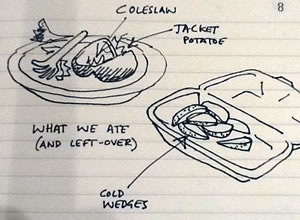 8
COLESLAW
JACKET
POTATOE
WHAT WE ATE
(AND LEFT-OVER)
COLD
WEDGES